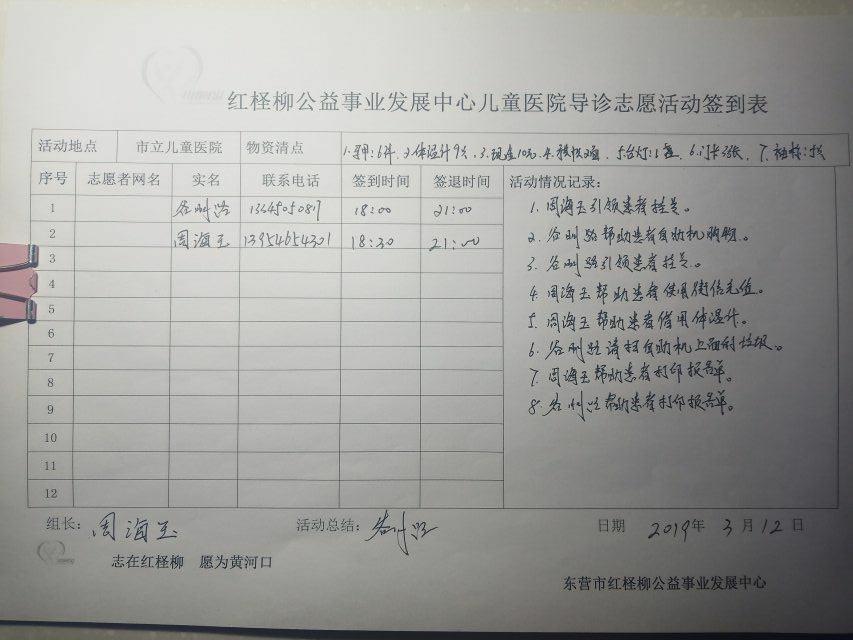 红柽柳公益事业发展中心儿童医院导诊志愿活动签到表
活动地点 市立儿童医院 物资清点 1.马甲:6件、2.体温计9支、3.现金10元、4.
序号 志愿者网名 实名 联系电话 签到时间 签退时间 活动情况记录:
1 谷州路 18:00 21:00 1. 周海玉引领患者挂号。
2 周海玉 13954654301 18:30 21:00 2. 谷州路帮助患者自助机购物。
3 3. 谷州路引领患者挂号。
4 4. 周海玉帮助患者使用微信充值。
5 5. 周海玉帮助患者借用体温计。
6 6. 谷州路清扫自助机上面的垃圾。
7 7. 周海玉帮助患者打印报告单。
8 8. 谷州路帮助患者打印报告单。
9
10
11
12
组长: 周海玉 活动总结: 谷州路 日期 2019年 3月12日
志在红柽柳 愿为黄河口
东营市红柽柳公益事业发展中心